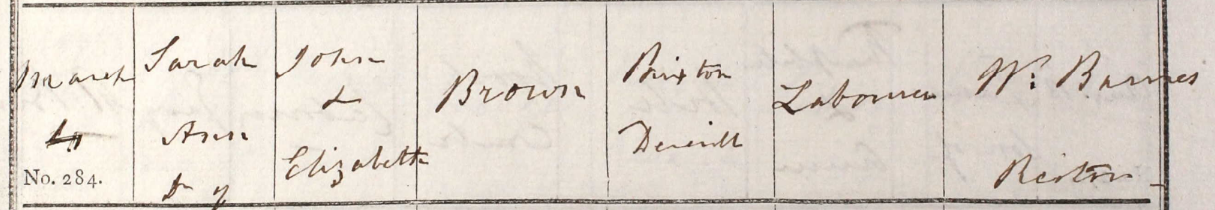 March
No. 284.
Sarah
Ann
Dr of
John
&
Elizabeth
Brown
Brixton
Deverill
Labourer
Wm: Barnes
Rector